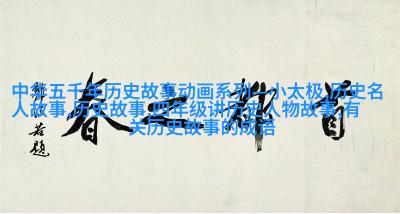 中华五千年历史故事动画系列-小太极,历史名
人故事,历史故事,四年级讲历史人物故事,有
关历史故事的成语
首都之春
郭沫若题